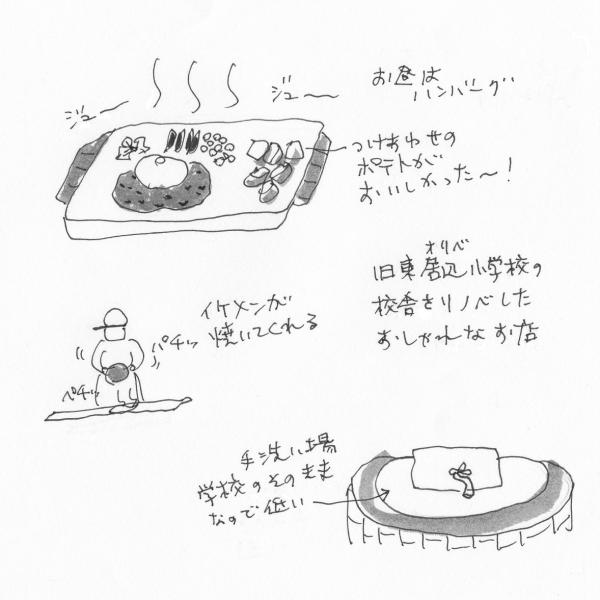 お昼は
ハンバーグ
ジュー
ジュー
つけあわせの
ポテトが
おいしかった〜!
オリベ
旧東居辺小学校の
校舎をリノベした
おしゃれなお店
イケメンが
焼いてくれる
パチッ
パチッ
手洗い場
学校のそのまま
なので低い